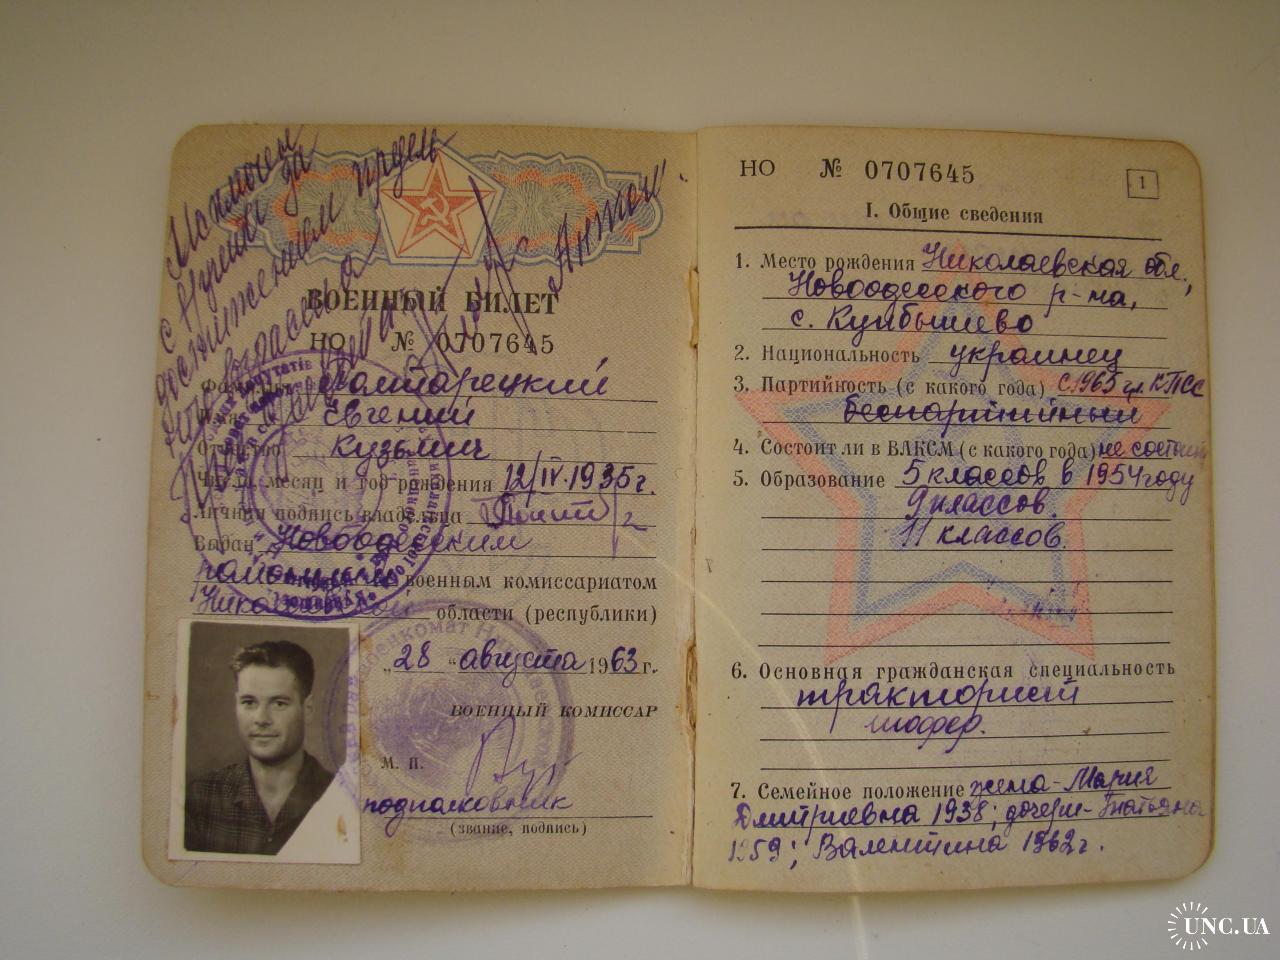 Исключен
с учёта за
достижением предель
ного возраста
ВОЕННЫЙ БИЛЕТ
НО № 0707645
Фамилия
Имя Евгений
Отчество Кузьмич
Число, месяц и год рождения 12/IV-1935г.
Личная подпись владельца
Выдан Новоодесским
районным военным комиссариатом
Николаевской области (республики)
„28 “ августа 1963 г.
ВОЕННЫЙ КОМИССАР
М. П.
подполковник
(звание, подпись)
НО № 0707645
1
I. Общие сведения
1. Место рождения Николаевская обл.,
Новоодесского р-на,
с. Куйбышево
2. Национальность украинец
3. Партийность (с какого года) с 1965 г. КПСС
беспартийный
4. Состоит ли в ВЛКСМ (с какого года) не состоит
5. Образование 5 классов в 1954 году
9 классов.
11 классов.
6. Основная гражданская специальность
тракторист
шофер.
7. Семейное положение жена - Мария
Дмитриевна 1938; дочери - Татьяна
1959; Валентина 1962 г.
UNC.UA